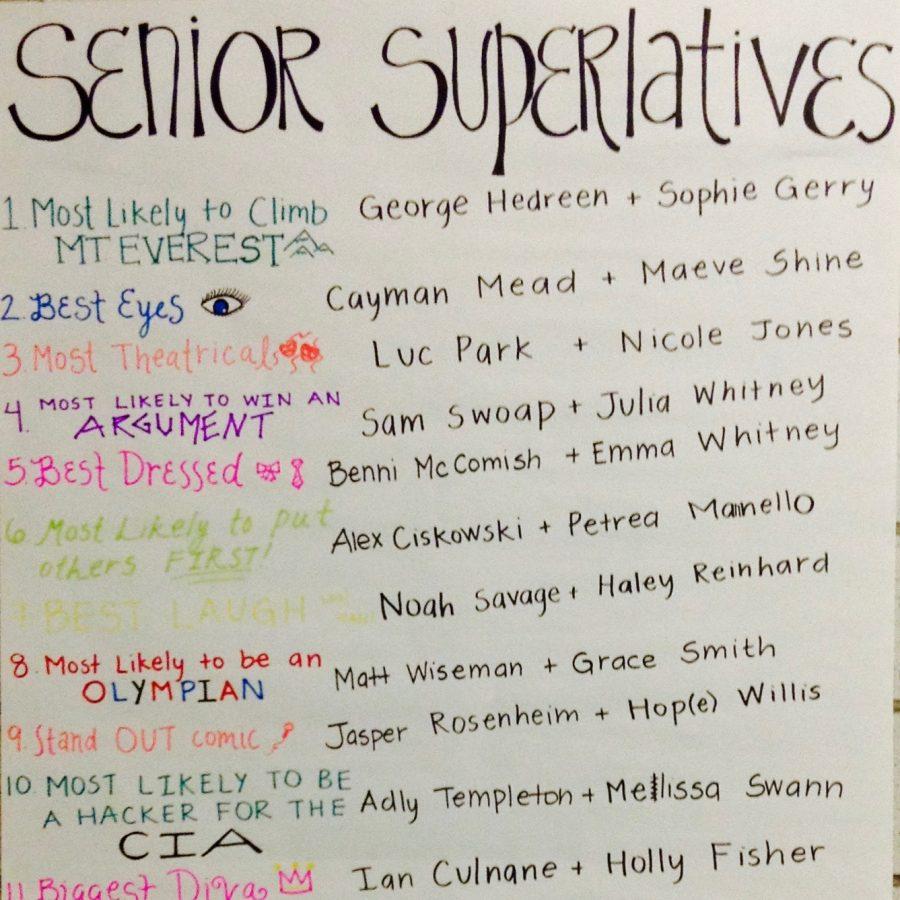 SENIOR SUPERlatiVES
1. Most Likely to Climb George Hedreen + Sophie Gerry
MT EVEREST
2. BEst Eyes Cayman Mead + Maeve Shine
3. Most Theatricals Luc Park + Nicole Jones
4. MOST LIKELY TO WIN AN
ARGUMENT Sam Swoap + Julia Whitney
5. BEst Dressed Benni McComish + Emma Whitney
6 Most Likely to put
others FIRST! Alex Ciskowski + Petrea Mannello
7 BEST LAUGH Noah Savage + Haley Reinhard
8. Most Likely to be an
OLYMPIAN Matt Wiseman + Grace Smith
9. Stand OUT comic Jasper Rosenheim + Hop(e) Willis
10 MOST LIKELY TO BE
A HACKER FOR THE Adly Templeton + Mellissa Swann
CIA
11 Biggest Diva Ian Culnane + Holly Fisher